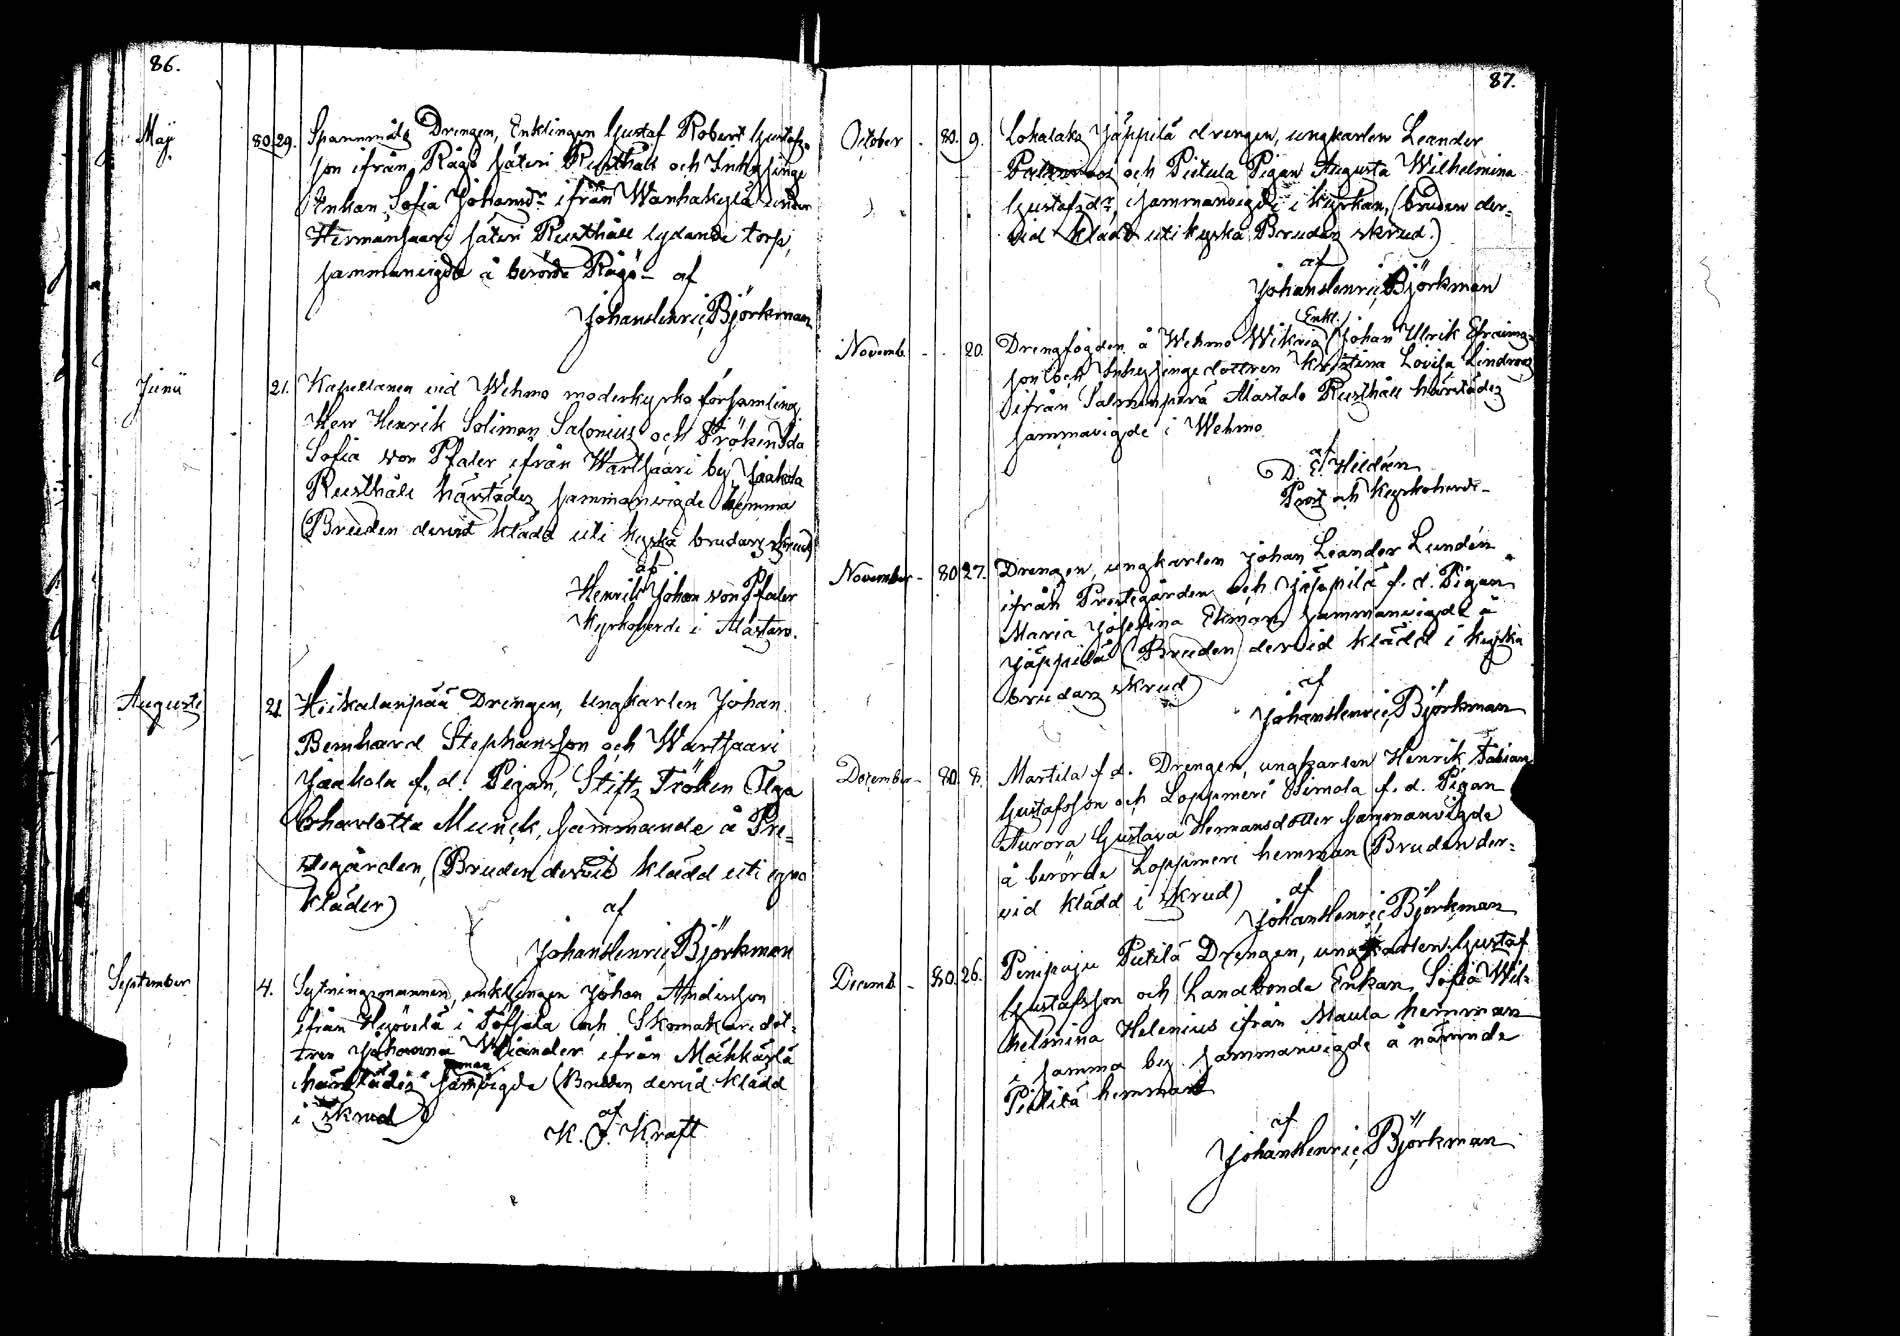 86.
Maj 80 29. Spannmåls Drengen, Enklingen Gustaf Robert Gustafs-
son ifrån Rågö säteri Rusthåll och Inhysinge
Enkan Sofia Johansdr ifrån Wanhakylä under
Hermansaari säteri Rusthåll lydande torp,
sammanvigde å berörde Rågö - af
Johan Henric Björkman
Junii 21. Kapellanen vid Wehmo moderkyrko församling
Herr Henrik Soliman Salonius och Fröken Ida
Sofia von Pfaler ifrån Wartsaari by Jaakola
Rusthåll härstädes sammanvigde hemma
(Bruden dervid klädd uti kyska brudars skrud)
af
Henrik Johan von Pfaler
Kyrkoherde i Alastaro.
Augusti 21. Hiikalanpää Drengen, Ungkarlen Johan
Bernhard Stephansson och Wartsaari
Jaakola f. d. Pigan, Stifts Fröken Olga
Charlotta Munck, sammande å Pre-
stegården, (Bruden dervid klädd uti egna
kläder)
af
Johan Henric Björkman
September 4. Sytningsmannen, enklingen Johan Andersson
ifrån Hyövelä i Töfsala och Skomakaredot-
tren Johanna Wiander ifrån Mähkärlä
härstädes samman vigde (Bruden dervid klädd
i skrud)
af
K. J. Kraft
87.
October - 80. 9. Lokalaks Jäppilä drengen, ungkarlen Leander
och Pietula Pigan Augusta Wilhelmina
Gustafsdr, sammanvigde i kyrkan, (bruden der-
vid klädd uti kyska Brudars skrud.)
af
Johan Henric Björkman
Novemb. - - 20. Drengfogden å Wehmo Wiknäs Enkl. Johan Ulrik Efraims-
son och Inhysinge dottren Kristina Lovisa Lindroos
ifrån Salmenperä Alastalo Rusthåll härstädes
sammavigde i Wehmo
af
D. E. Hildén
Prost och Kyrkoherde -
November - 80 27. Drengen, ungkarlen Johan Leander Lundén
ifrån Prestegården och Jäppilä f. d. Pigan
Maria Josefina Ekman sammanvigde å
Jäppilä (Bruden dervid klädd i kyska
brudars skrud)
af
Johan Henric Björkman
December - 80. 8. Martila f. d. Drengen, ungkarlen Henrik Fabian
Gustafsson och Loppmeri Simola f. d. Pigan
Aurora Gustava Hermansdotter sammanvigde
å berörde Loppmeri hemman (Bruden der-
vid klädd i skrud)
af
Johan Henric Björkman
Decemb - 80. 26. Pempoju Pietilä Drengen, ungkarlen Gustaf
Gustafsson och Landbonde Enkan, Sofia Wil-
helmina Helenius ifrån Maula hemman
i samma by. sammanvigde å nämnde
Pietilä hemman
af
Johan Henric Björkman